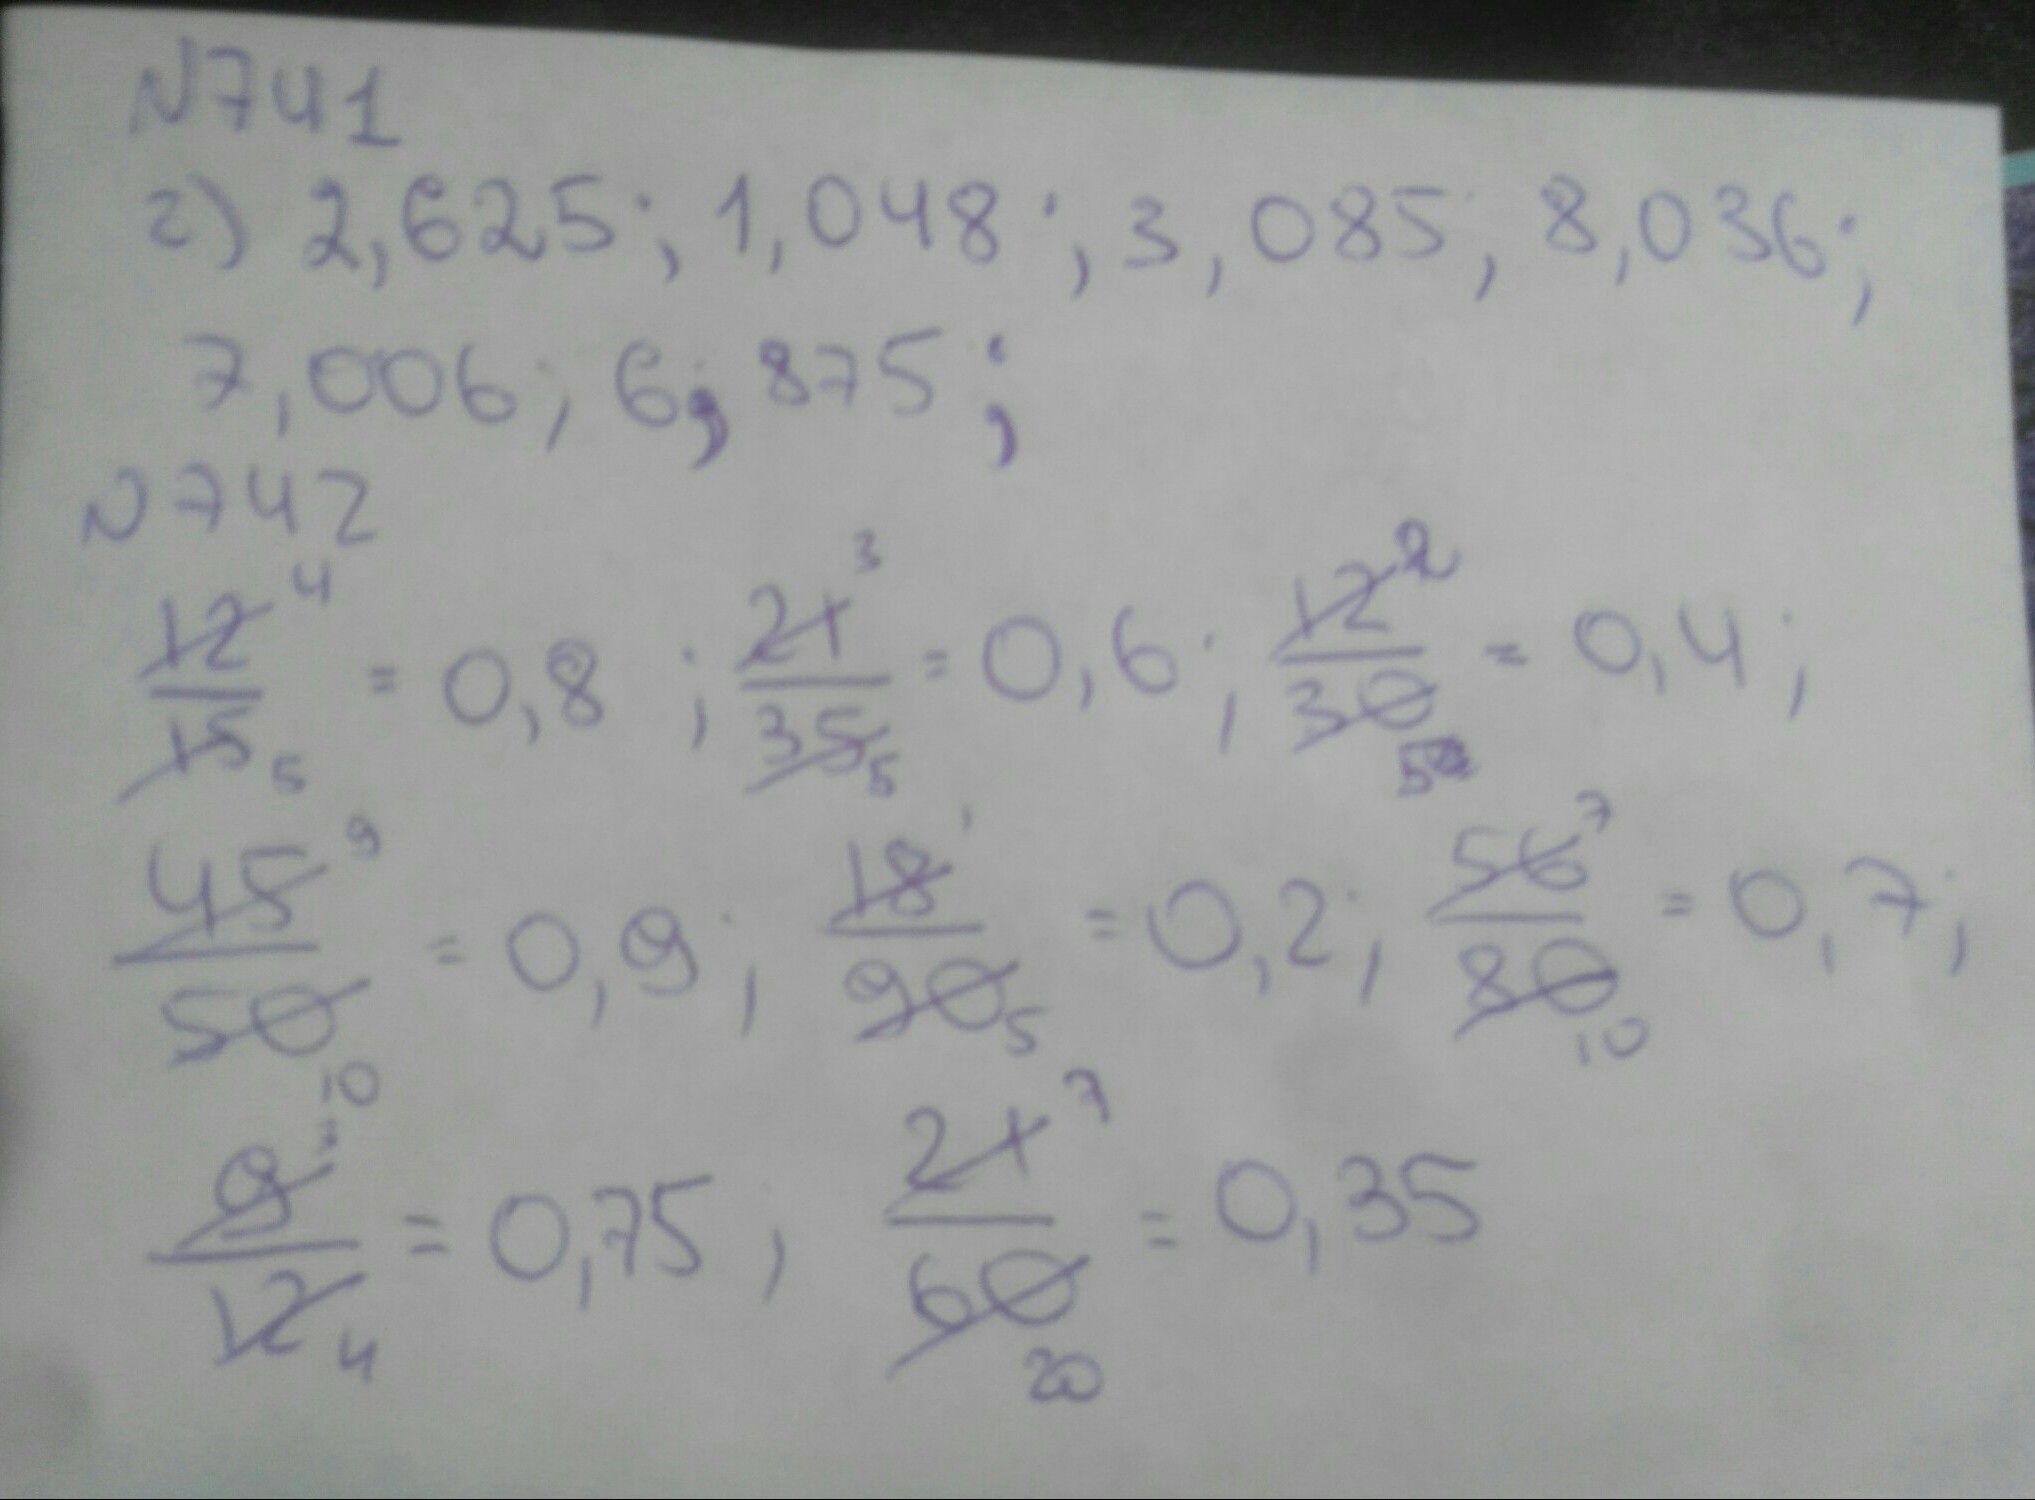 N741
г) 2,625; 1,048; 3,085; 8,036;
7,006; 6,875;
N742
12/15 4/5 = 0,8; 21/35 3/5 = 0,6; 12/30 2/5 = 0,4;
45/50 9/10 = 0,9; 18/90 1/5 = 0,2; 56/80 7/10 = 0,7;
9/12 3/4 = 0,75; 21/60 7/20 = 0,35